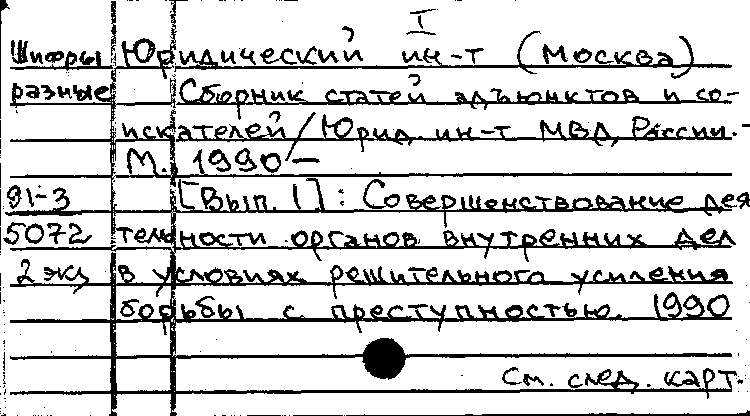 I
Шифры Юридический ин-т (Москва)
разные Сборник статей адъюнктов и со-
искателей / Юрид. ин-т МВД России. -
М., 1990 -
91-3 [Вып. 1] : Совершенствование дея
5072 тельности органов внутренних дел
2 экз в условиях решительного усиления
борьбы с преступностью. 1990
См. след. карт.